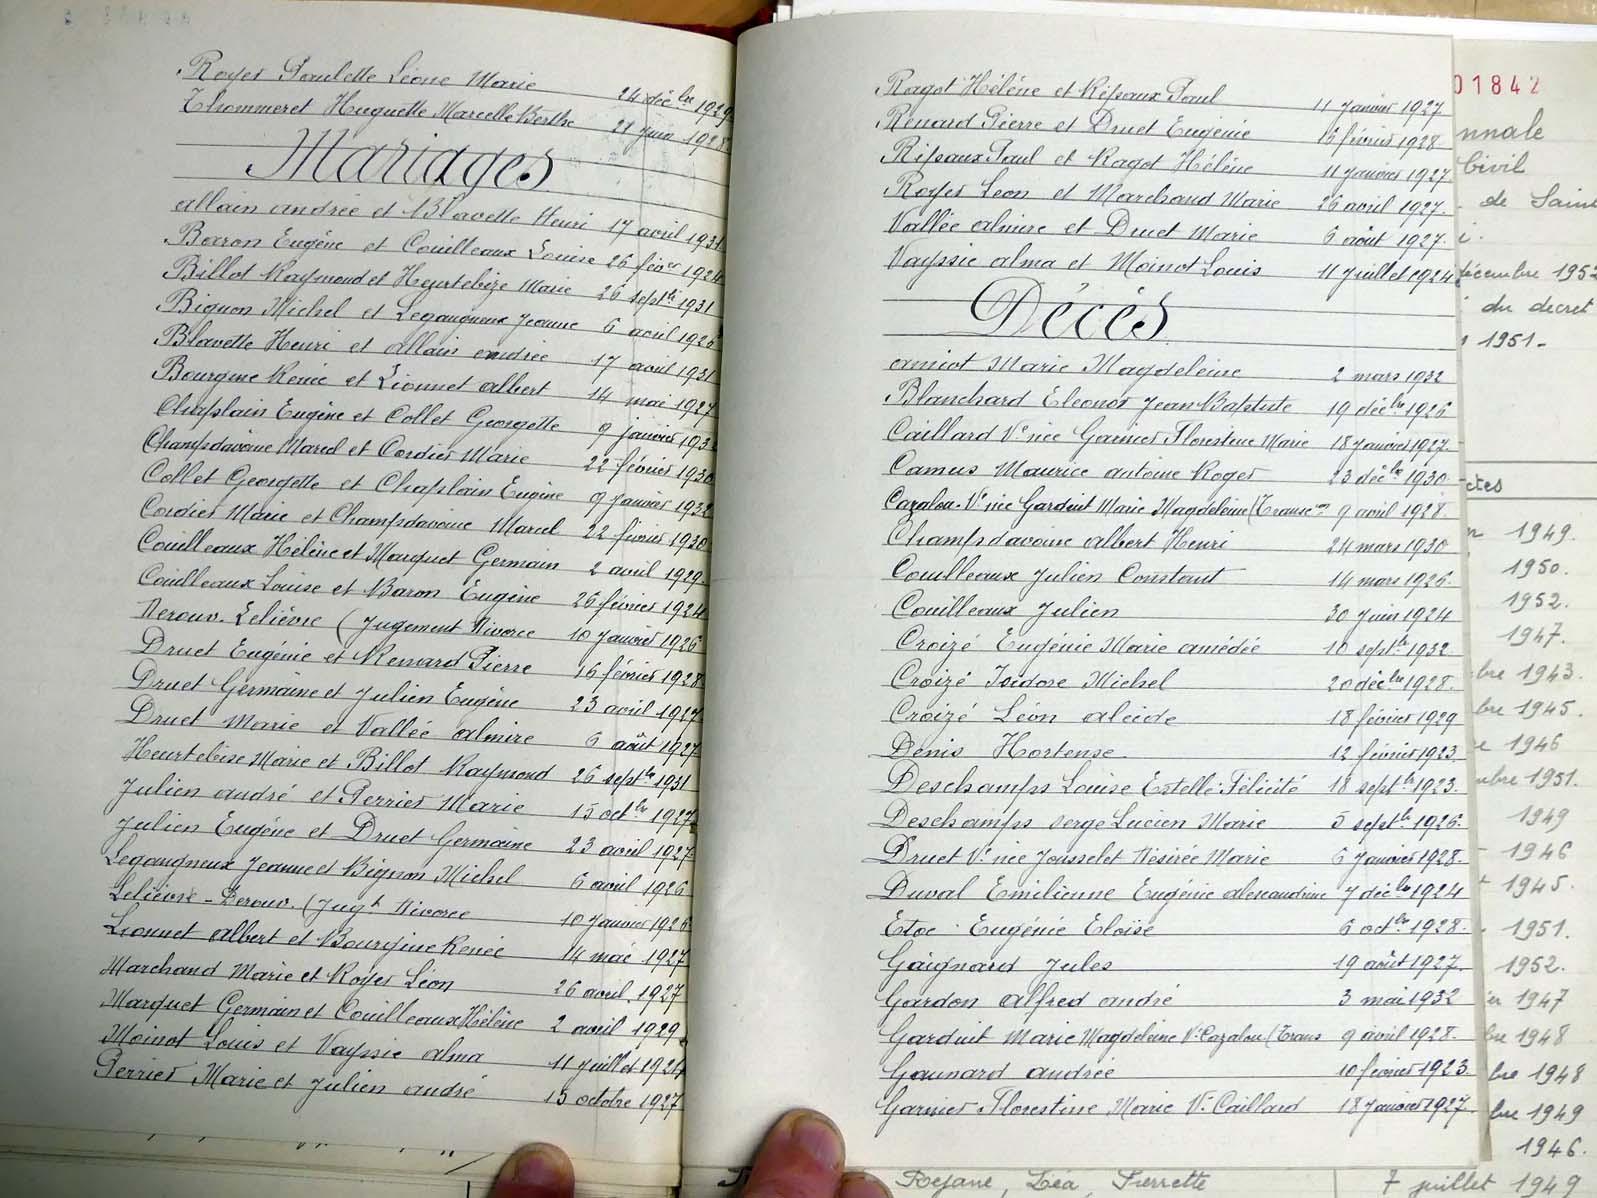 Royer Paulette Léone Marie 24 déc.bre 1929
Thommeret Huguette Marcelle Berthe 21 juin 1928
Mariages
allain andrée et Blavette Henri 17 avril 1931
Baron Eugène et Couilleaux Louise 26 févr 1924
Billot Raymond et Heurtebize Marie 26 septbre 1931
Bignon Michel et Legangneux Jeanne 6 avril 1926
Blavette Henri et allain andrée 17 avril 1931
Bourgine Renée et Lionnet albert 14 mai 1927
Chaplain Eugène et Collet Georgette 9 janvier 193
Champdavoine Marcel et Cordier Marie 22 février 1930
Collet Georgette et Chaplain Eugène 9 janvier 1932
Cordier Marie et Champdavoine Marcel 22 février 1930
Couilleaux Hélène et Marquet Germain 2 avril 1929
Couilleaux Louise et Baron Eugène 26 février 1924
Derouv. Lelièvre (Jugement Divorce 10 janvier 1926
Druet Eugénie et Renard Pierre 16 février 1928
Druet Germaine et Julien Eugène 23 avril 1927
Druet Marie et Vallée almire 6 août 1927
Heurtebise Marie et Billot Raymond 26 septbre 1931
Julien andré et Perrier Marie 15 octbre 1927
Julien Eugène et Druet Germaine 23 avril 1927
Legangneux Jeanne et Bignon Michel 6 avril 1926
Lelièvre - Derouv. (Jugt Divorce 10 janvier 1926
Lionnet albert et Bourgine Renée 14 mai 1927
Marchand Marie et Royer Léon 26 avril 1927
Marquet Germain et Couilleaux Hélène 2 avril 1929
Moinot Louis et Vayssie alma 11 juillet 1924
Perrier Marie et Julien andré 15 octobre 1927
Ragot Hélène et Rissaux Paul 11 janvier 1927
Renard Pierre et Druet Eugénie 16 février 1928
Rissaux Paul et Ragot Hélène 11 janvier 1927
Royer Léon et Marchand Marie 26 avril 1927.
Vallée almire et Druet Marie 6 août 1927.
Vayssie alma et Moinot Louis 11 juillet 1924
Décès
amiot Marie Magdeleine 2 mars 1932
Blanchard Eleonor Jean Baptiste 19 décbre 1926
Caillard Ve née Garnier Florestine Marie 18 janvier 1927.
Camus Maurice antoine Roger 23 décbre 1930
Cazalou Ve née Garduit Marie Magdeleine (Transcon 9 avril 1928.
Champdavoine albert Henri 24 mars 1930
Couilleaux Julien Constant 14 mars 1926.
Couilleaux Julien 30 juin 1924
Croizé Eugénie Marie amédée 10 septbre 1932.
Croizé Isidore Michel 20 décbre 1928.
Croizé Léon alcide 18 février 1929
Denis Hortense 12 février 1923
Deschamps Louise Estelle Félicité 18 septbre 1923.
Deschamps Serge Lucien Marie 5 septbre 1926.
Druet Ve née Jousselet Désirée Marie 6 janvier 1928.
Duval Emilienne Eugénie alexandrine 7 décbre 1924
Etoc Eugénie Eloïse 6 octbre 1928.
Gaignard Jules 19 août 1927.
Gardon alfred andré 3 mai 1932
Garduit Marie Magdeleine Ve Cazalou (Trans 9 avril 1928.
Gaunard andrée 10 février 1923.
Garnier Florestine Marie Ve Caillard 18 janvier 1927.
01842
nnale
Civil
de Sain
décembre 1952
du decret
1951.
ctes
1949.
1950.
1952.
1947.
bre 1943.
bre 1945.
1946
mbre 1951.
1949
1946
1945.
1951.
1952.
1947
1948
bre 1948
bre 1949
1946.
Rejane, Léa, Pierrette 7 juillet 1949